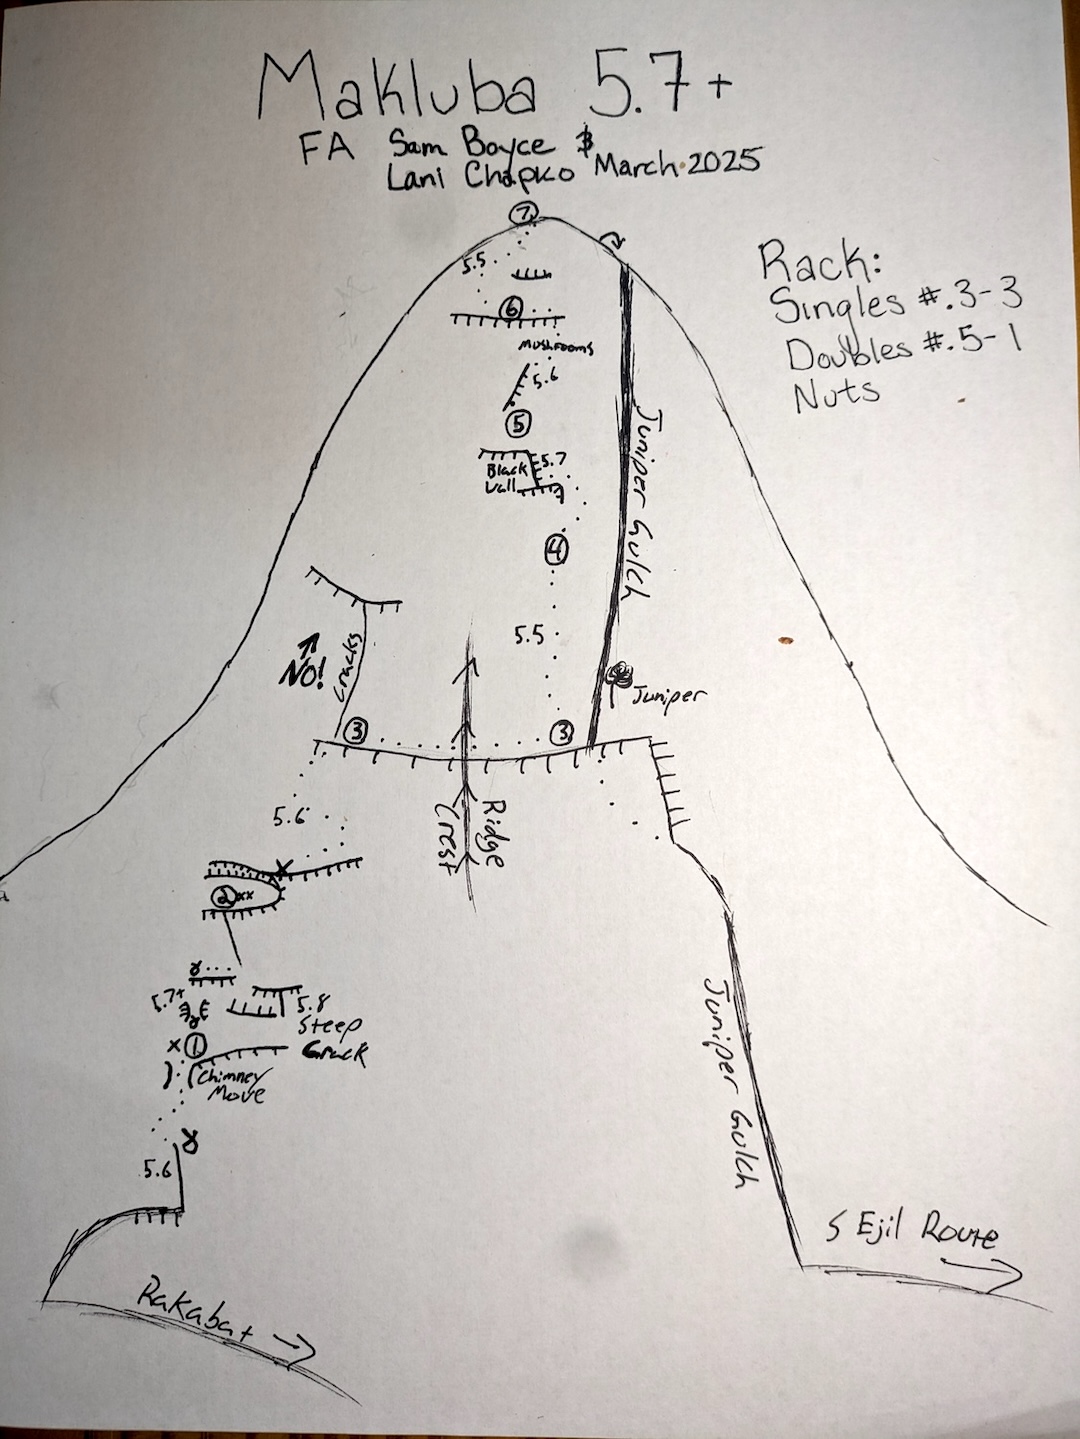 Makluba 5.7+
FA Sam Boyce &
Lani Chapko March 2025
7
5.5
Rack:
Singles #.3-3
Doubles #.5-1
Nuts
6
Mushrooms
5.6
5
5.7
Black
Wall
Juniper Gulch
4
5.5
NO!
Cracks
Juniper
3
3
5.6
Ridge
Crest
2 xx
5.7+
5.8
Steep
Crack
x 1
Chimney
Move
5.6
Juniper Gulch
S Ejil Route
Rakabat